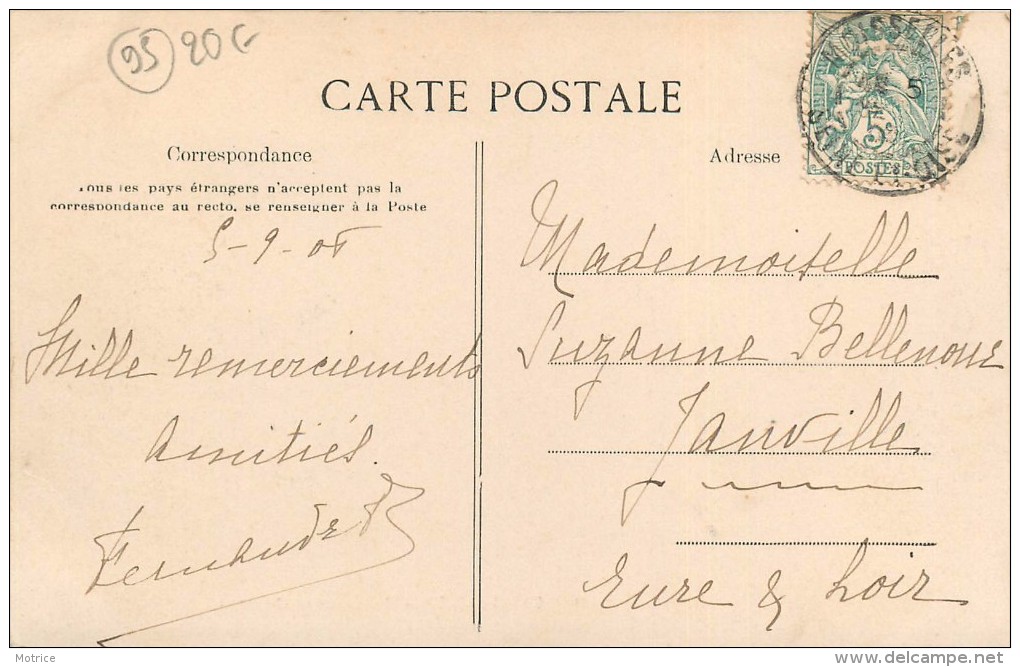 95 20 €
CARTE POSTALE
Correspondance
Tous les pays étrangers n'acceptent pas la
correspondance au recto, se renseigner à la Poste
Adresse
5
5c
POSTES
5-9-05
Mille remerciements
Amitiés.
Mademoiselle
Suzanne Bellenoue
Janville
Eure & Loir
Motrice
www.delcampe.net